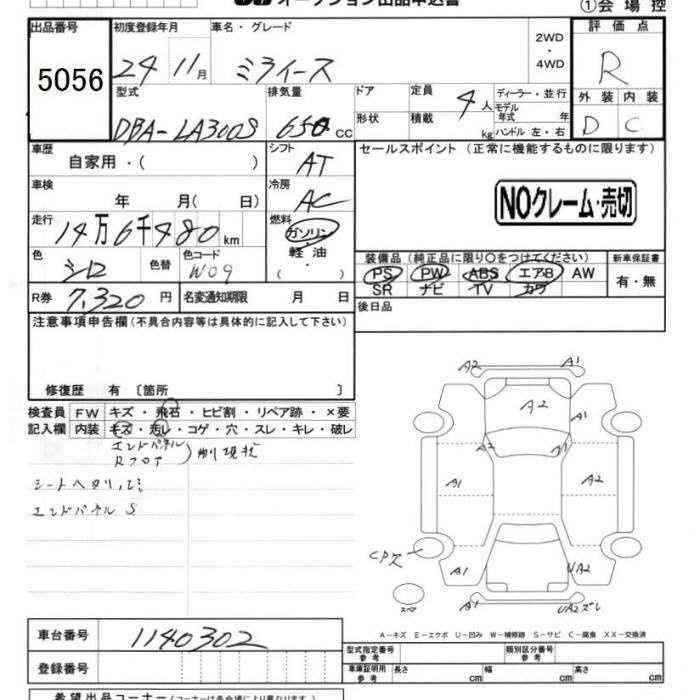 オークション出品申込書
①会場控
出品番号
5056
初度登録年月
24 11月
車名・グレード
ミライース
2WD
・
4WD
評価点
R
型式
DBA-LA300S
排気量
650 cc
ドア
形状
定員
4人
積載
kg
ディーラー・並行
モデル
年式 年
ハンドル 左・右
外装 内装
D C
車歴
自家用・( )
シフト
AT
セールスポイント (正常に機能するものに限ります)
NOクレーム・売切
車検
年 月( 日)
冷房
AC
走行
14万6千480km
燃料
ガソリン
・
軽油
( )
色
シロ
色替
色コード
W09
装備品(純正品に限り○をつけてください)
PS PW ABS エアB AW
SR ナビ TV カワ
新車保証書
有・無
R券
7,320 円
名変通知期限 月 日
後日品
注意事項申告欄(不具合内容等は具体的に記入して下さい)
修復歴 有 〔箇所 〕
検査員
記入欄
FW キズ・飛石・ヒビ割・リペア跡・×要
内装 キズ・汚レ・コゲ・穴・スレ・キレ・破レ
エンドパネル
Rフロア
シートヘタリ,
エンドパネル S
A2 A1
A2 A1
A2 A1
A1 A2
A1 UA2
A1 UA2ズレ
スペア
A－キズ E－エクボ U－凹み W－補修跡 S－サビ C－腐食 XX－交換済
車台番号
1140302
型式指定番号
参考
類別区分番号
参考
登録番号
車庫証明用
参考
長さ cm
幅 cm
高さ cm
希望出品コーナー(コーナーは各会場により異なります)